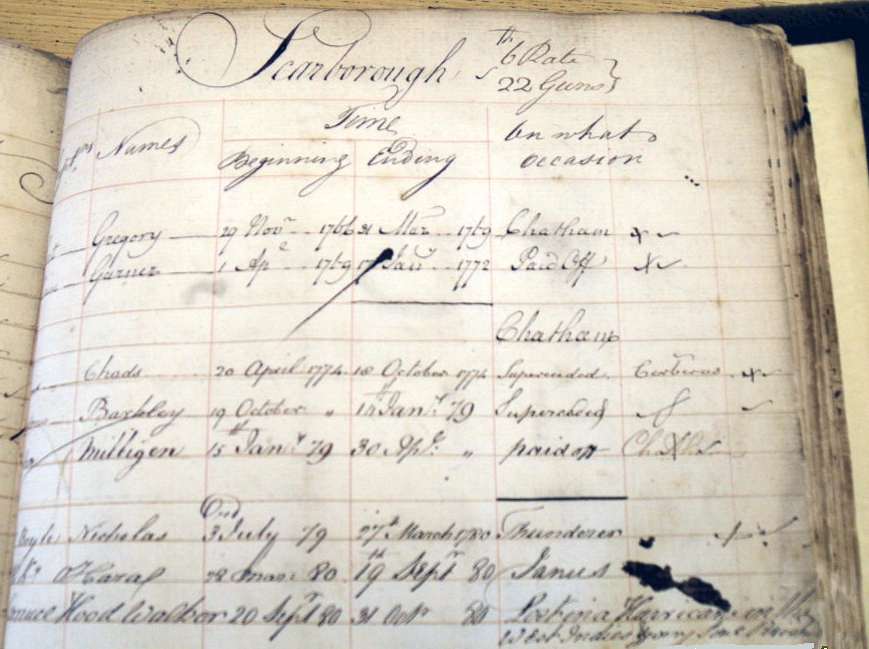 Scarborough 6th Rate
22 Guns
Time
On what
Names Beginning Ending Occasion
Gregory 29 Novr 1766 31 Mar 1769 Chatham
Gurner 1 Ape 1769 17 Jany 1772 Paid Off
Chatham
Chads 20 April 1774 18 October 1774 Superceeded Cerberus
Barkley 19 October " 14 Jany 79 Superceeded
Milligen 15th Jany 79 30 Apl " paid off
Nicholas 3rd July 79 27th March 1780 Thunderer
O'Hara 28 Mar 80 19th Septr 80 Janus
Hood Walker 20 Septr 80 31 Octr 80 Lost in a Hurricane in the
West Indies